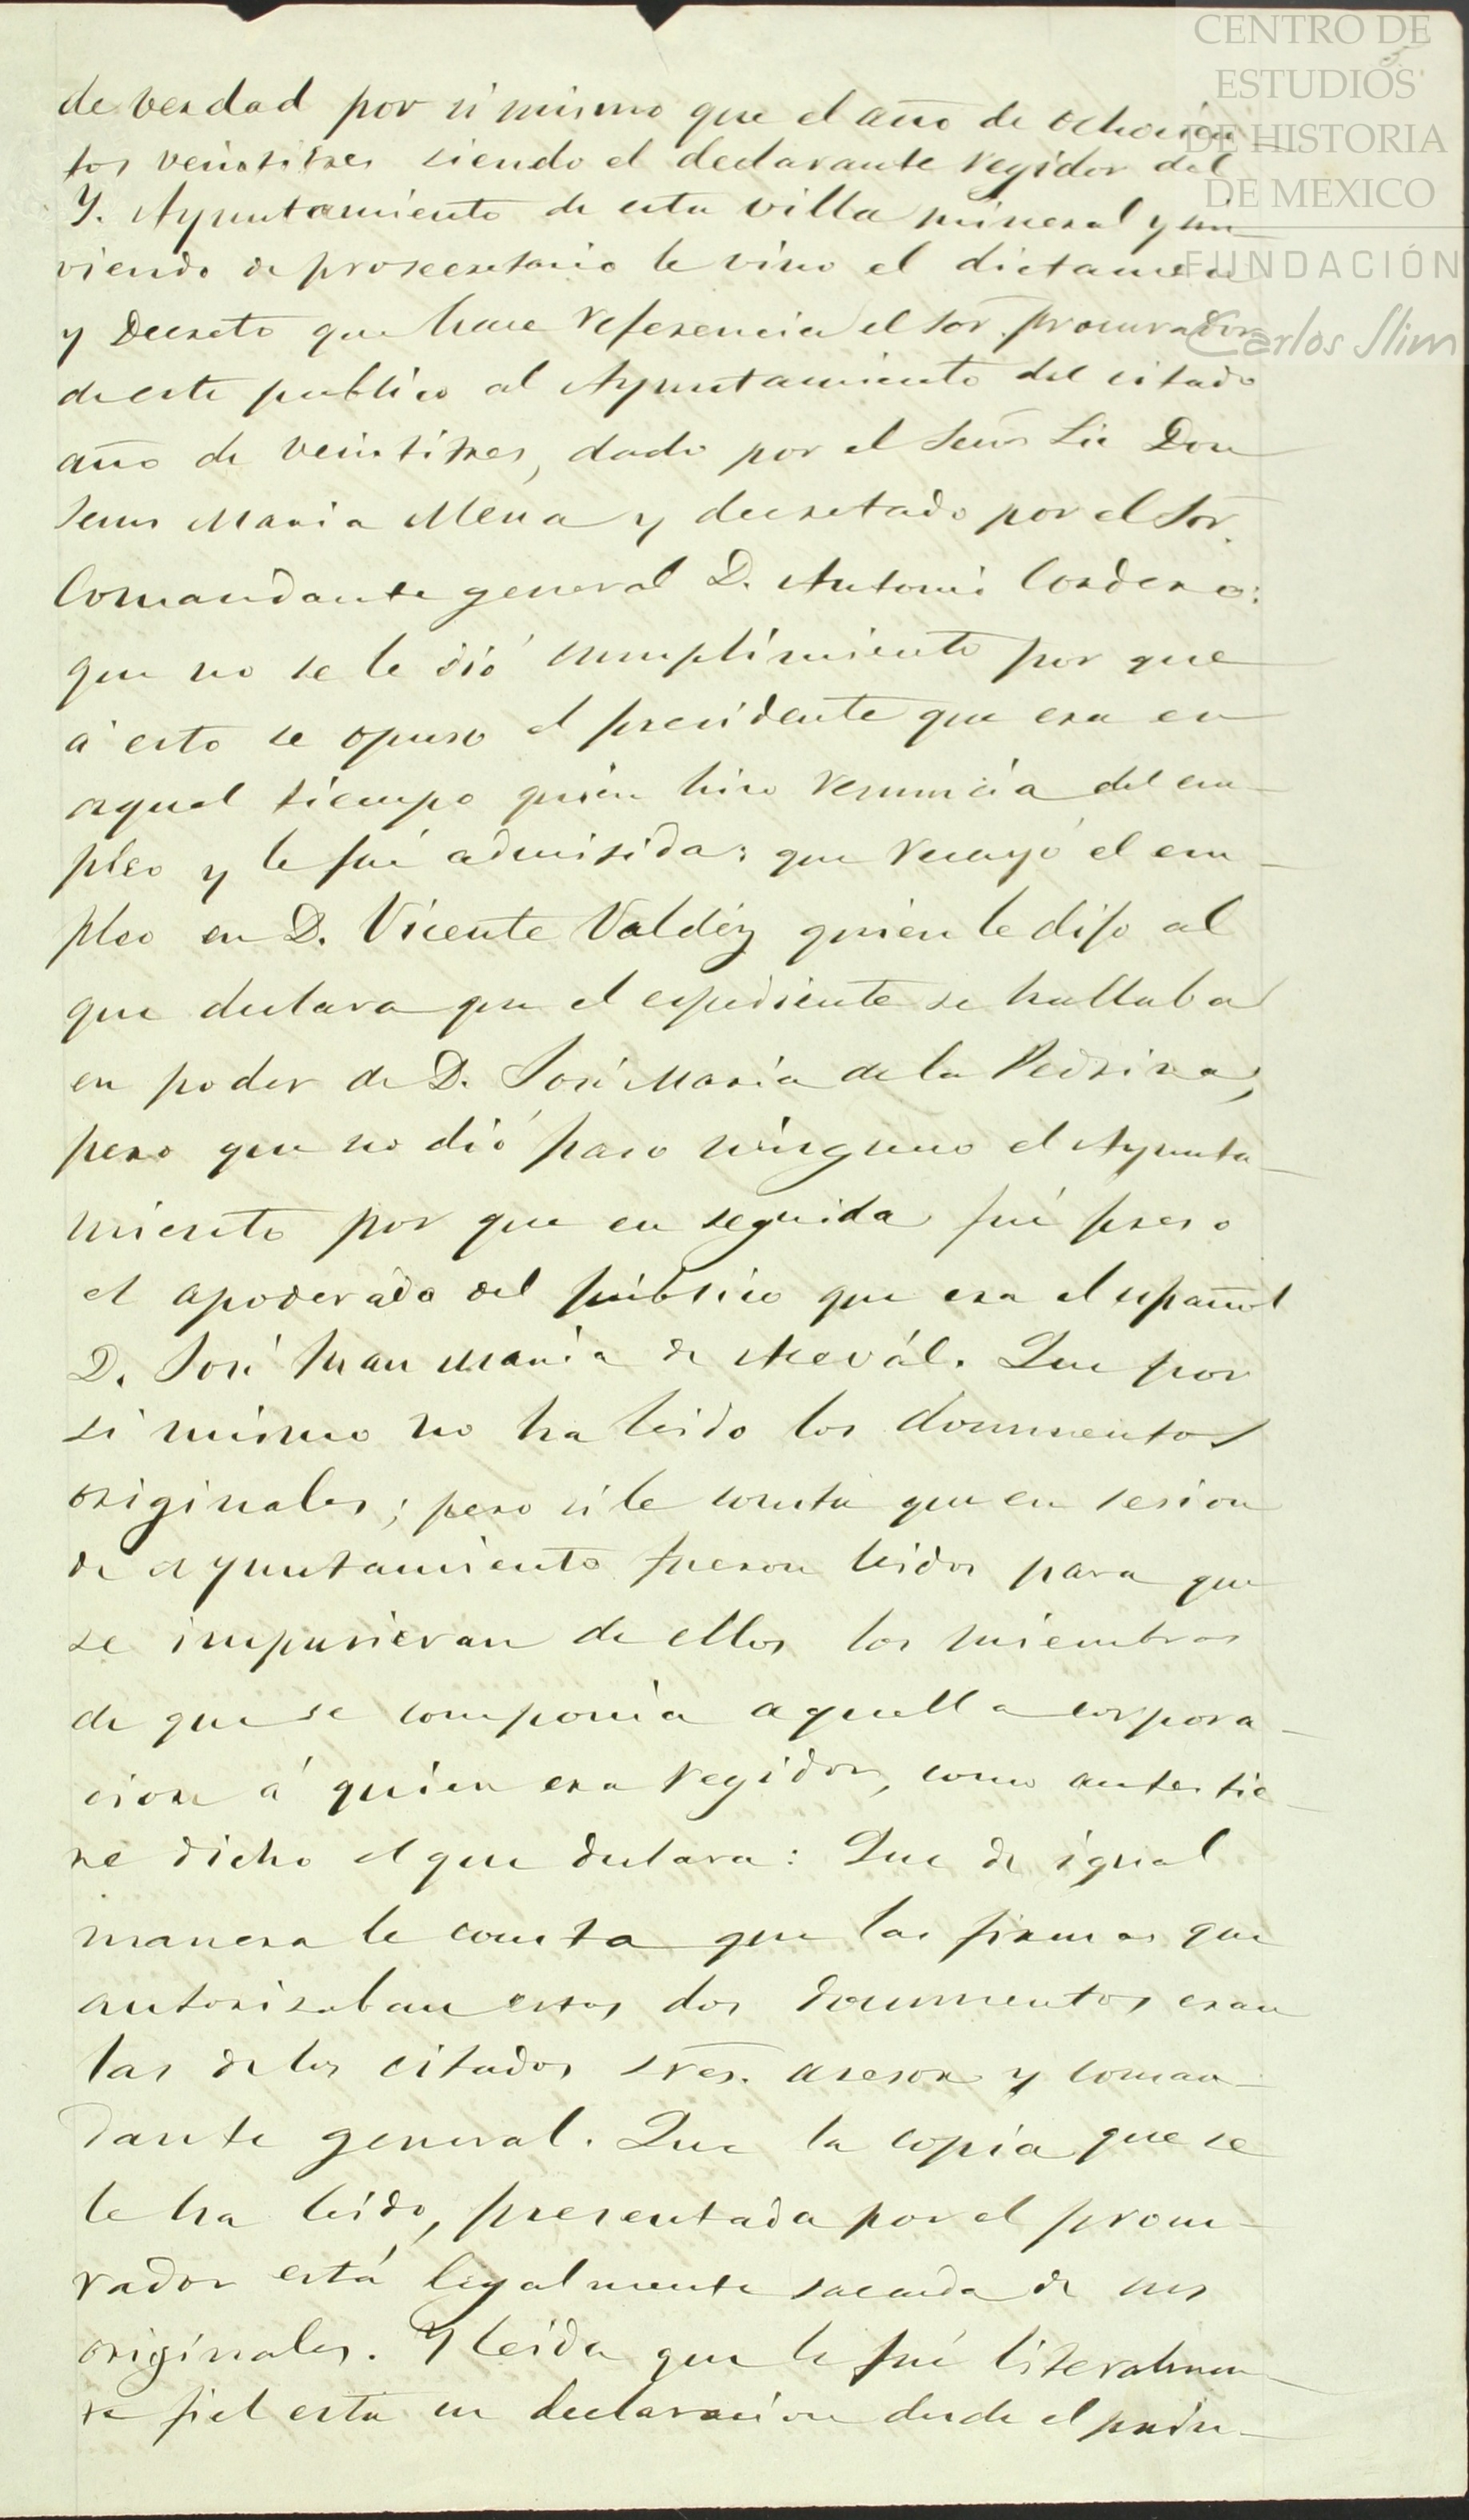 CENTRO DE
ESTUDIOS
DE HISTORIA
DE MEXICO
FUNDACIÓN
Carlos Slim
de verdad por si mismo que el año de ochocien
tos veintitres siendo el declarante regidor del
Y. Ayuntamiento de esta villa mineral y
viendo de prosecretario le vino el dictamen
y Decreto que hace referencia el Sor. procurador
de este publico al Ayuntamiento del citado
año de veintitres, dado por el Señor Lic Don
Jesus Maria Mena y decretado por el Sor.
Comandante general D. Antonio Cordero:
que no se le dió cumplimiento por que
á esto se opuso el presidente que era en
aquel tiempo quien hiso renuncia del em-
pleo y le fué admitida: que recayó el em-
pleo en D. Vicente Valdéz quien le dijo al
que declara que el espediente se hallaba
en poder de D. José Maria de la Pedriza,
pero que no dió paso ninguno el Ayunta-
miento por que en seguida fué preso
el apoderado del público que era el español
D. José Juan Maria de Acevál. Que por
si mismo no ha leido los documentos
originales; pero si le consta que en sesion
de ayuntamiento fueron leidos para que
se impusieran de ellos los miembros
de que se componia aquella corpora-
cion á quien era regidor, como antes tie-
ne dicho el que declara: Que de igual
manera le consta que las firmas que
autorisaban esos dos documentos eran
las de los citados sres. asesor y coman-
dante general. Que la copia que se
le ha leido, presentada por el procu-
rador está legalmente sacada de sus
originales. Y leida que le fué literalmen-
te fiel esta su declaracion desde el prin-